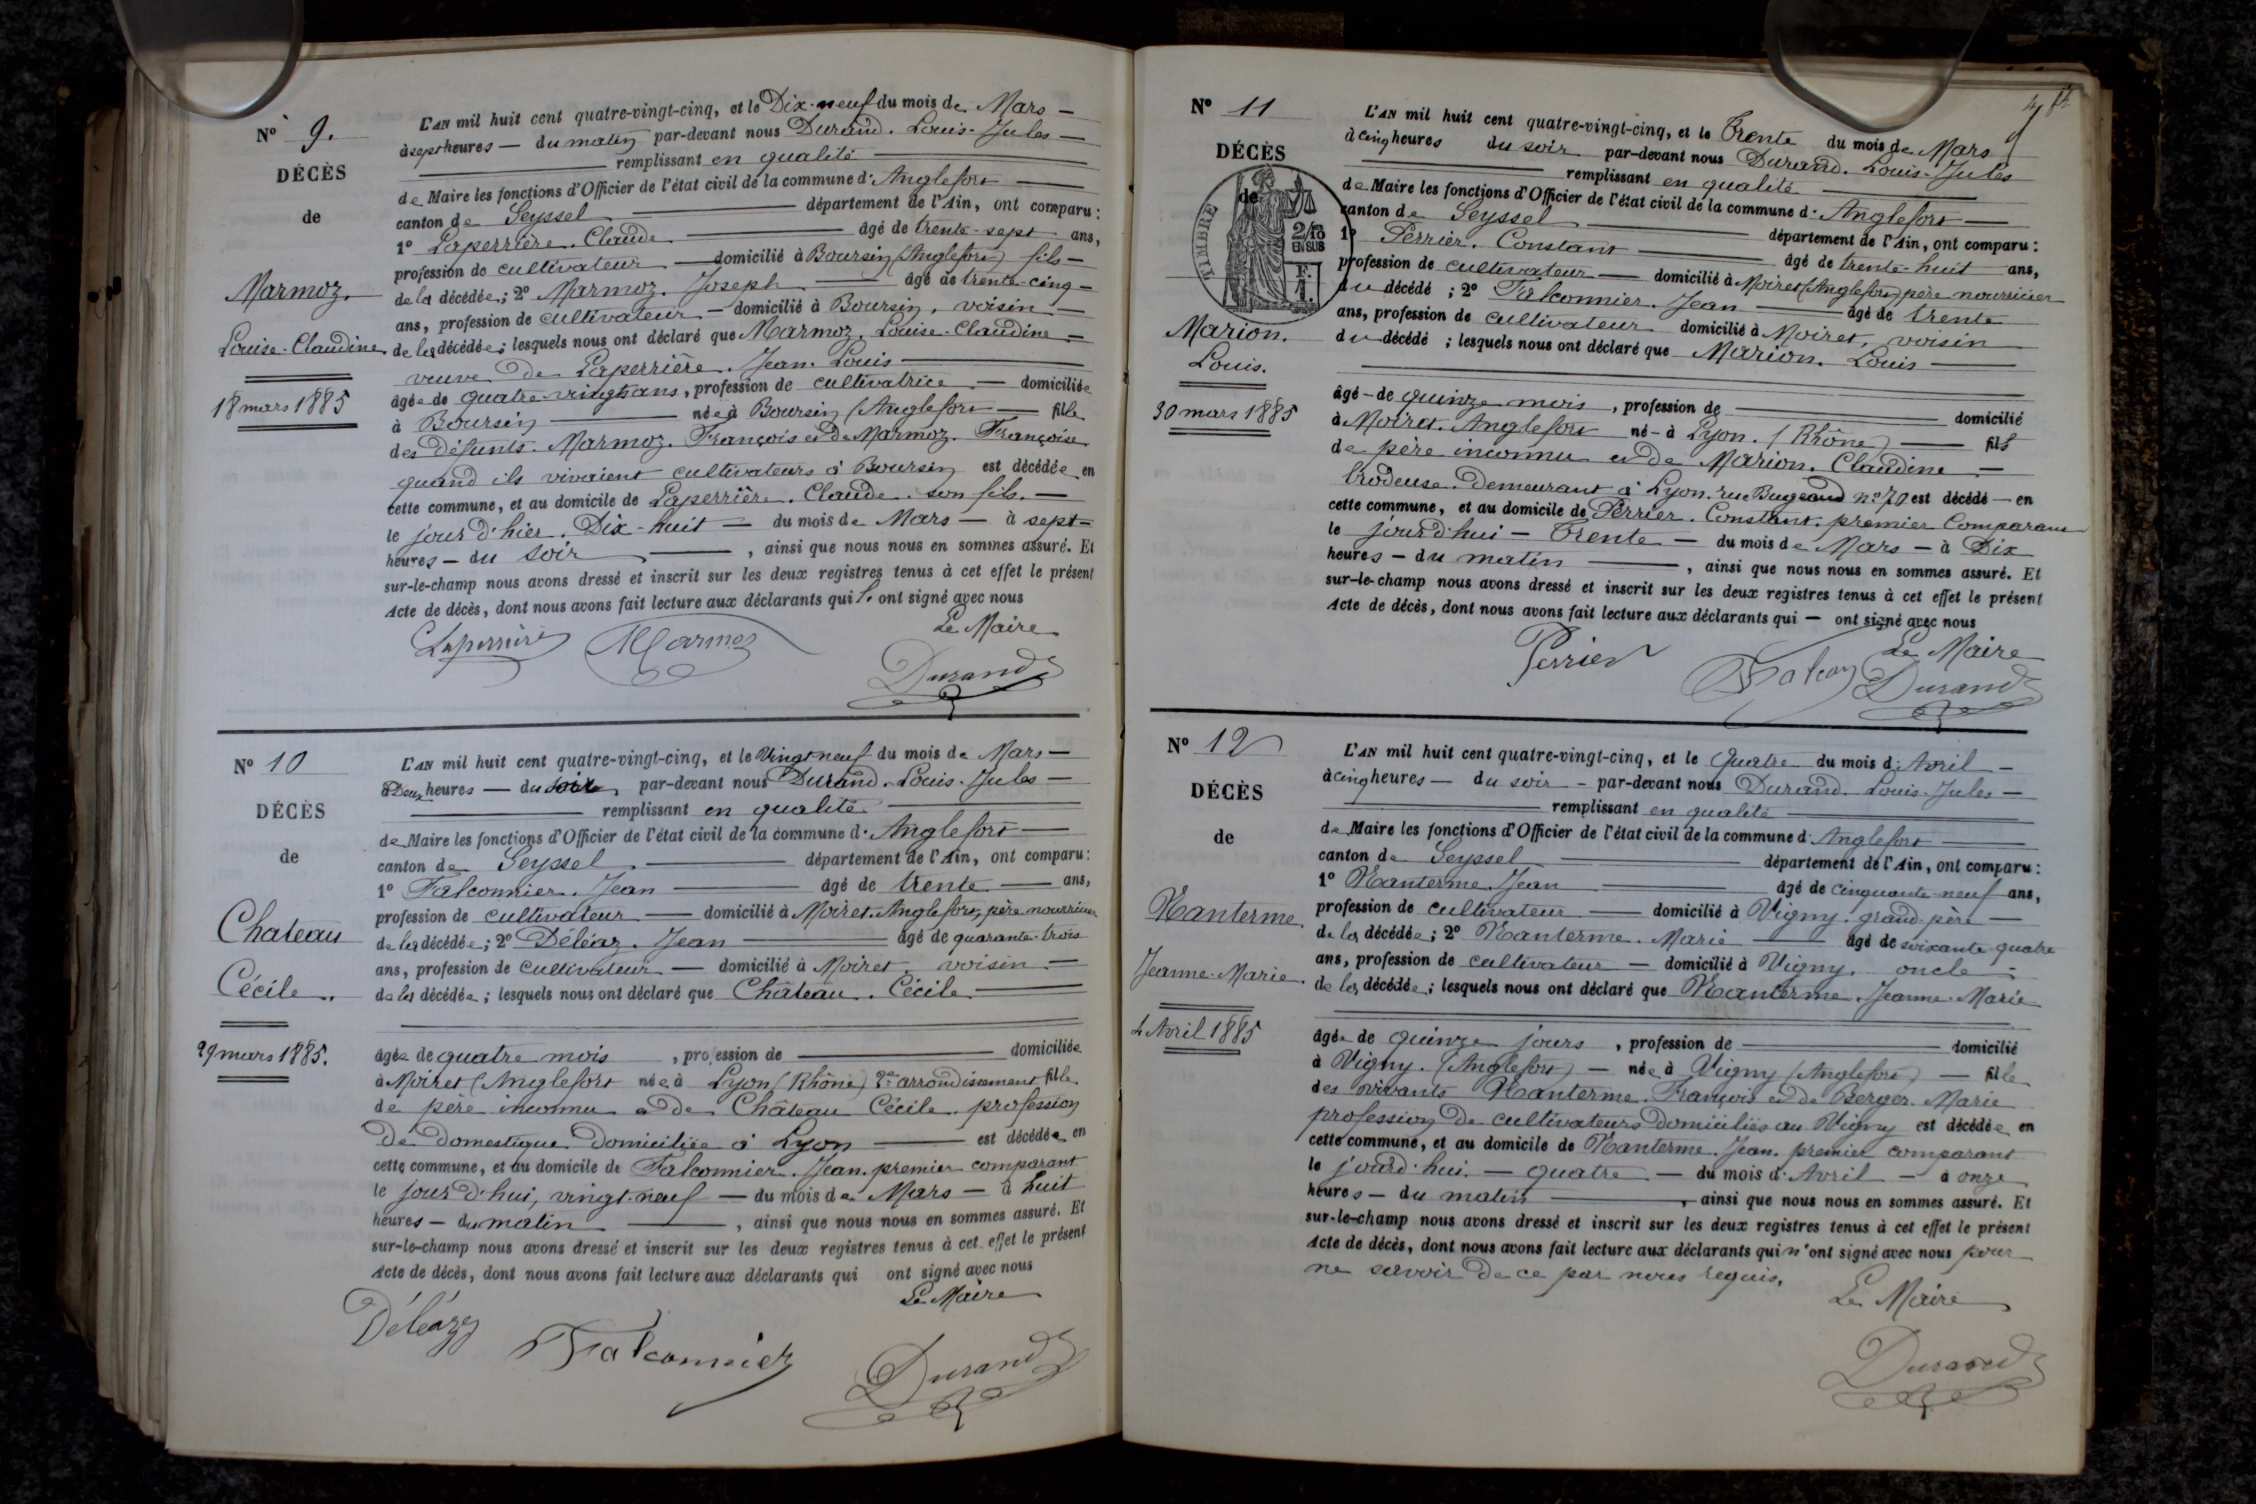 N° 9.
DÉCÈS
de
Marmoz.
Louise-Claudine
18 mars 1885
L'AN mil huit cent quatre-vingt-cinq, et le Dix-neuf du mois de Mars —
à sept heures — du matin par-devant nous Durand. Louis-Jules —
remplissant en qualité
de Maire les fonctions d'Officier de l'état civil de la commune d'Anglefort —
canton de Seyssel — département de l'Ain, ont comparu :
1° Laperrière. Claude — âgé de trente-sept ans,
profession de cultivateur — domicilié à Boursin (Anglefort) fils —
de la décédée ; 2° Marmoz. Joseph — âgé de trente-cinq —
ans, profession de cultivateur — domicilié à Boursin, voisin —
de la décédée ; lesquels nous ont déclaré que Marmoz. Louise-Claudine —
veuve de Laperrière. Jean-Louis —
âgée de quatre-vingts ans, profession de cultivatrice — domiciliée
à Boursin — née à Boursin (Anglefort — fille
des défunts Marmoz. François et de Marmoz. Françoise
quand ils vivaient cultivateurs à Boursin est décédée en
cette commune, et au domicile de Laperrière. Claude. son fils. —
le jour d'hier. Dix-huit — du mois de Mars — à sept —
heures — du soir — , ainsi que nous nous en sommes assuré. Et
sur-le-champ nous avons dressé et inscrit sur les deux registres tenus à cet effet le présent
Acte de décès, dont nous avons fait lecture aux déclarants qui ont signé avec nous
Le Maire
Laperrière Marmoz
Durand
N° 10
DÉCÈS
de
Chateau
Cécile.
29 mars 1885.
L'AN mil huit cent quatre-vingt-cinq, et le Vingt-neuf du mois de Mars —
à Deux heures — du soir par-devant nous Durand. Louis-Jules —
remplissant en qualité
de Maire les fonctions d'Officier de l'état civil de la commune d'Anglefort —
canton de Seyssel — département de l'Ain, ont comparu :
1° Falconnier. Jean — âgé de trente — ans,
profession de cultivateur — domicilié à Moiret. Anglefort, père nourricier
de la décédée ; 2° Déléaz. Jean — âgé de quarante-trois
ans, profession de cultivateur — domicilié à Moiret. voisin —
de la décédée ; lesquels nous ont déclaré que Château. Cécile —
âgée de quatre mois , profession de — domiciliée
à Moiret (Anglefort née à Lyon (Rhône) 2e arrondissement fille
de père inconnu et de Château Cécile. profession
de domestique domiciliée à Lyon — est décédée en
cette commune, et au domicile de Falconnier. Jean. premier comparant
le jour d'hui, vingt-neuf — du mois de Mars — à huit
heures — du matin — , ainsi que nous nous en sommes assuré. Et
sur-le-champ nous avons dressé et inscrit sur les deux registres tenus à cet effet le présent
Acte de décès, dont nous avons fait lecture aux déclarants qui ont signé avec nous
Le Maire
Déléaz
Falconnier
Durand
N° 11
DÉCÈS
de
TIMBRE
2/10 EN SUS
Marion.
Louis.
30 mars 1885
L'AN mil huit cent quatre-vingt-cinq, et le Trente du mois de Mars
à cinq heures du soir par-devant nous Durand. Louis-Jules
remplissant en qualité
de Maire les fonctions d'Officier de l'état civil de la commune d'Anglefort —
canton de Seyssel — département de l'Ain, ont comparu :
1° Perrier. Constant — âgé de trente-huit ans,
profession de cultivateur — domicilié à Moiret (Anglefort) père nourricier
du décédé ; 2° Falconnier. Jean — âgé de trente
ans, profession de cultivateur domicilié à Moiret, voisin
du décédé ; lesquels nous ont déclaré que Marion. Louis —
âgé — de quinze mois , profession de — domicilié
à Moiret. Anglefort né — à Lyon. (Rhône) — fils
de père inconnu et de Marion. Claudine —
brodeuse. demeurant à Lyon. rue Bugeaud n° 70 est décédé — en
cette commune, et au domicile de Perrier. Constant. premier Comparant
le jourd'hui — Trente — du mois de Mars — à Dix
heures — du matin — , ainsi que nous nous en sommes assuré. Et
sur-le-champ nous avons dressé et inscrit sur les deux registres tenus à cet effet le présent
Acte de décès, dont nous avons fait lecture aux déclarants qui — ont signé avec nous
Le Maire
Perrier
Durand
N° 12
DÉCÈS
de
Nanterme
Jeanne-Marie.
4 Avril 1885
L'AN mil huit cent quatre-vingt-cinq, et le Quatre du mois d'Avril —
à cinq heures — du soir — par-devant nous Durand. Louis-Jules —
remplissant en qualité
de Maire les fonctions d'Officier de l'état civil de la commune d'Anglefort —
canton de Seyssel — département de l'Ain, ont comparu :
1° Nanterme. Jean — âgé de cinquante-neuf ans,
profession de cultivateur — domicilié à Vigny. grand-père —
de la décédée ; 2° Nanterme. Marie — âgé de soixante-quatre
ans, profession de cultivateur — domicilié à Vigny. oncle —
de la décédée ; lesquels nous ont déclaré que Nanterme. Jeanne-Marie
âgée de quinze jours , profession de — domicilié
à Vigny. (Anglefort) — née à Vigny (Anglefort) — fille
des vivants Nanterme. François et de Berger. Marie
profession de cultivateurs domiciliés au Vigny est décédée en
cette commune, et au domicile de Nanterme. Jean. premier comparant
le jourd'hui — quatre — du mois d'Avril — à onze
heures — du matin — , ainsi que nous nous en sommes assuré. Et
sur-le-champ nous avons dressé et inscrit sur les deux registres tenus à cet effet le présent
Acte de décès, dont nous avons fait lecture aux déclarants qui n'ont signé avec nous pour
ne savoir de ce par nous requis.
Le Maire
Durand